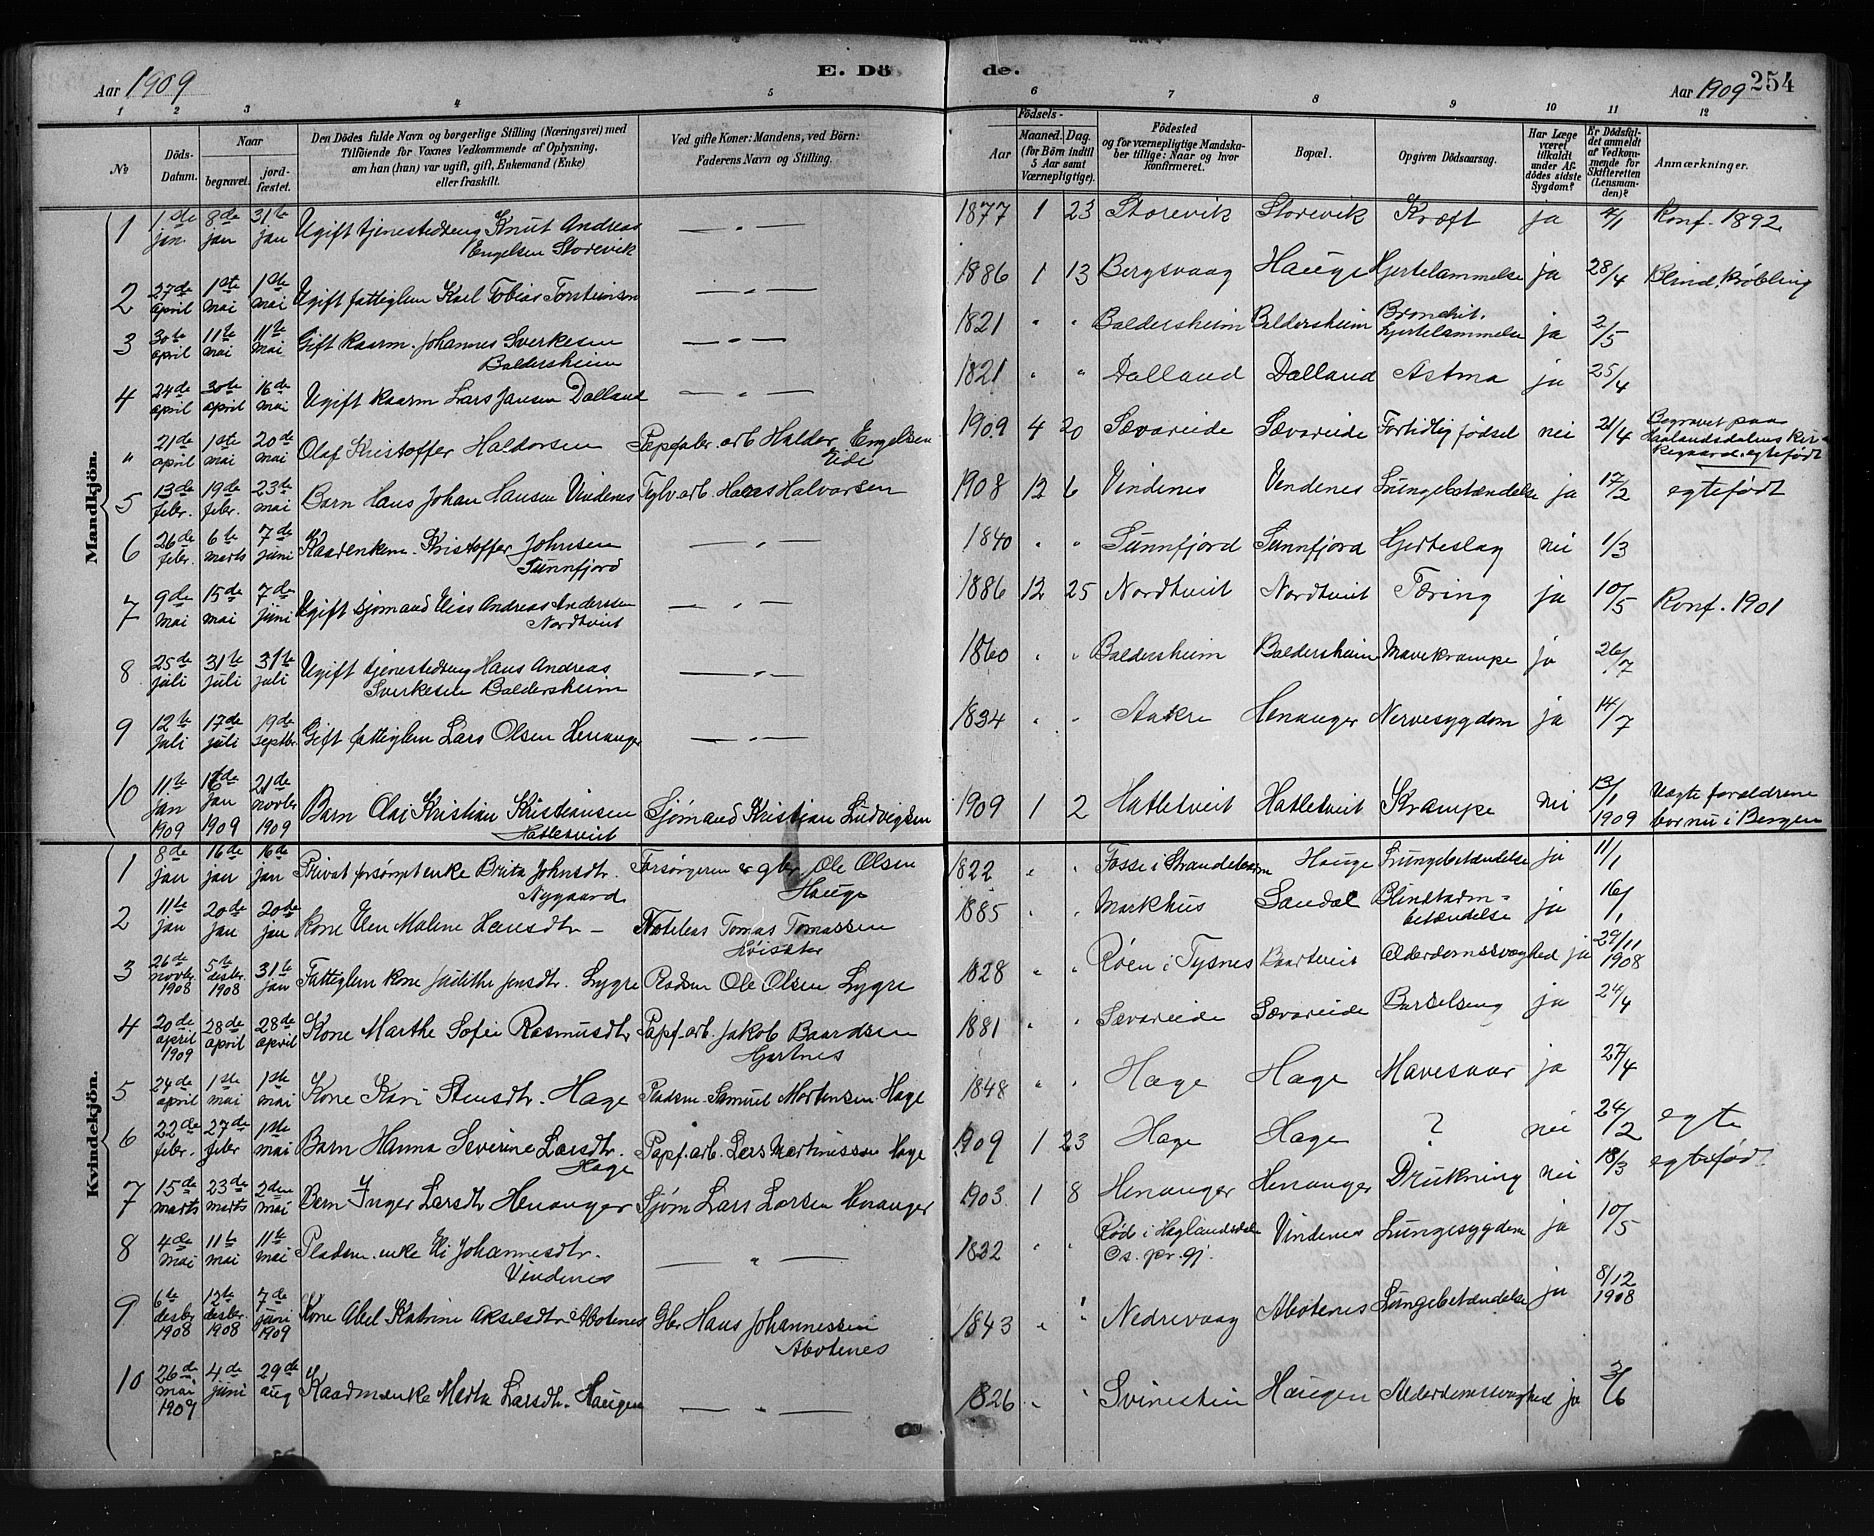 E. Döde.
254
Aar 1909
Aar 1909
1 2 3 4 5 6 7 8 9 10 11 12
No
Döds-Datum.
Naar
begravet.
jordfæstet.
Den Dödes fulde Navn og borgerlige Stilling (Næringsvei) med
Tilföiende for Voxnes Vedkommende af Oplysning,
om han (hun) var ugift, gift, Enkemand (Enke)
eller fraskilt.
Ved gifte Koner: Mandens, ved Börn:
Faderens Navn og Stilling.
Födsels-
Aar
Maaned. Dag.
(for Börn indtil
5 Aar samt
Værnepligtige).
Födested
og for værnepligtige Mandska-
ber tillige: Naar og hvor
konfirmeret.
Bopæl.
Opgiven Dödsaarsag.
Har Læge
været
tilkaldt
under Af-
dödes sidste
Sygdom?
Er Dödsfal-
det anmeldt
af Vedkom-
mende for
Skifteretten
(Lensman-
den)?
Anmærkninger.
Mandkjön.
1 1de jan. 8de jan 31te jan Ugift tjenestedreng Knut Andreas Engelsen Storevik — " — 1877 1 23 Storevik Storevik Kræft ja 7/1 Konf. 1892
2 27de april 1ste mai 1ste mai Ugift fattiglem Karl Tobias Torsteinsen — " — 1886 1 13 Bergsvaag Hauge Hjertelammelse ja 28/4 Blind, krøbling
3 30te april 11te mai 11te mai Gift kaarm. Johannes Sverkesen Baldersheim — " — 1821 " " Baldersheim Baldersheim Bronchit. hjertelammelse ja 2/5
4 24de april 30te april 16de mai Ugift kaarm Lars Jansen Dalland — " — 1821 " " Dalland Dalland Astma ja 25/4
" 21de april 1ste mai 20de mai Olaf Kristoffer Haldorsen Papfabr. arb Haldor Engelsen Eide 1909 4 20 Sævareide Sævareide Fortidlig födsel nei 21/4 Begravet paa Haalandsdalens kirkegaard. egtefödt
5 13de febr. 19de febr. 23de mai Barn Hans Johan Hansen Vindenes Fylv. arb. Hans Halvorsen 1908 12 6 Vindenes Vindenes Lungebetændelse ja 17/2 egtefödt
6 26de febr. 6te marts 7de juni Kaarenkem. Kristoffer Johnsen Sunnfjord — " — 1840 " " Sunnfjord Sunnfjord Hjerteslag nei 1/3
7 9de mai 15de mai 7de juni Ugift sjömand Elias Andreas Anderssen Nordtveit — " — 1886 12 25 Nordtveit Nordtveit Tæring ja 10/5 Konf. 1901
8 25de juli 31te juli 31te juli Ugift tjenestedreng Hans Andreas Sverkesen Baldersheim — " — 1860 " " Baldersheim Baldersheim Mavekrampe ja 26/7
9 12te juli 17de juli 19de septbr Gift fattiglem Lars Olsen Henanger — " — 1834 " " Aakre Henanger Nervesygdom ja 14/7
10 11te jan 1909 16de jan 1909 21de novbr 1909 Barn Olai Kristian Kristiansen Hatletveit Sjømand Kristian Ludvigsen 1909 1 2 Hatletveit Hatletveit Krampe nei 13/1 1909 Uegte foraldrene bor nu i Bergen
Kvindekjön.
1 8de jan 16de jan 16de jan Privat forsørgt enke Brita Johnsdtr. Nygaard Forsørgeren er gbr Ole Olsen Hauge 1822 " " Fosse i Strandebarm Hauge Lungebetændelse ja 11/1
2 11te jan 20de jan 20de jan Kone Elen Malene Hansdtr — Notebas Tomas Tomassen 1885 " " Markhus Sandal Blindtarmbetændelse ja 16/1
3 26de novbr 1908 5te desbr 1908 31te jan Fattiglem kone Judithe Jensdtr. Lygre Pladsm Ole Olsen Lygre 1828 " " Røen i Tysnes Baartveit Alderdomssvaghed ja 29/11 1908
4 20de april 1909 28de april 28de april Kone Marthe Sofie Rasmusdtr Papf. arb. Jakob Baardsen Hjertnes 1881 " " Sævareide Sævareide Barselseng ja 24/4
5 24de april 1ste mai 1ste mai Kone Kari Stensdtr. Hage Pladsm. Samuel Mortensen Hage 1848 " " Hage Hage Mavesaar ja 27/4
6 22de febr. 27de febr 1ste mai Barn Hanna Severine Larsdtr. Hage Papf. arb. Lars Martinussen Hage 1909 1 23 Hage Hage ? nei 24/2 egte
7 15de marts 23de marts 2den mai Barn Inger Larsdtr Henanger Sjøm Lars Larsen Henanger 1903 1 8 Henanger Henanger Drukning nei 18/3 egtefød.
8 4de mai 11te mai 11te mai Pladsm. enke Eli Johannesdtr. Vindenes — " — 1832 " " Rød i Haglandsdalen Os. pr.gj. Vindenes Lungesygdom ja 10/5
9 6te desbr 1908 12te desbr 1908 7de juni 1909 Kone Abel Katrine Akselsdtr Abotenes Gbr Hans Johannessen Abotenes 1843 " " Nedrevaag Abotenes Lungebetændelse ja 8/12 1908
10 26de mai 1909 4de juni 29de aug Kaarmenke Marta Larsdtr. Haugen — " — 1826 " " Svinestein Haugen Alderdomssvaghed ja 3/6